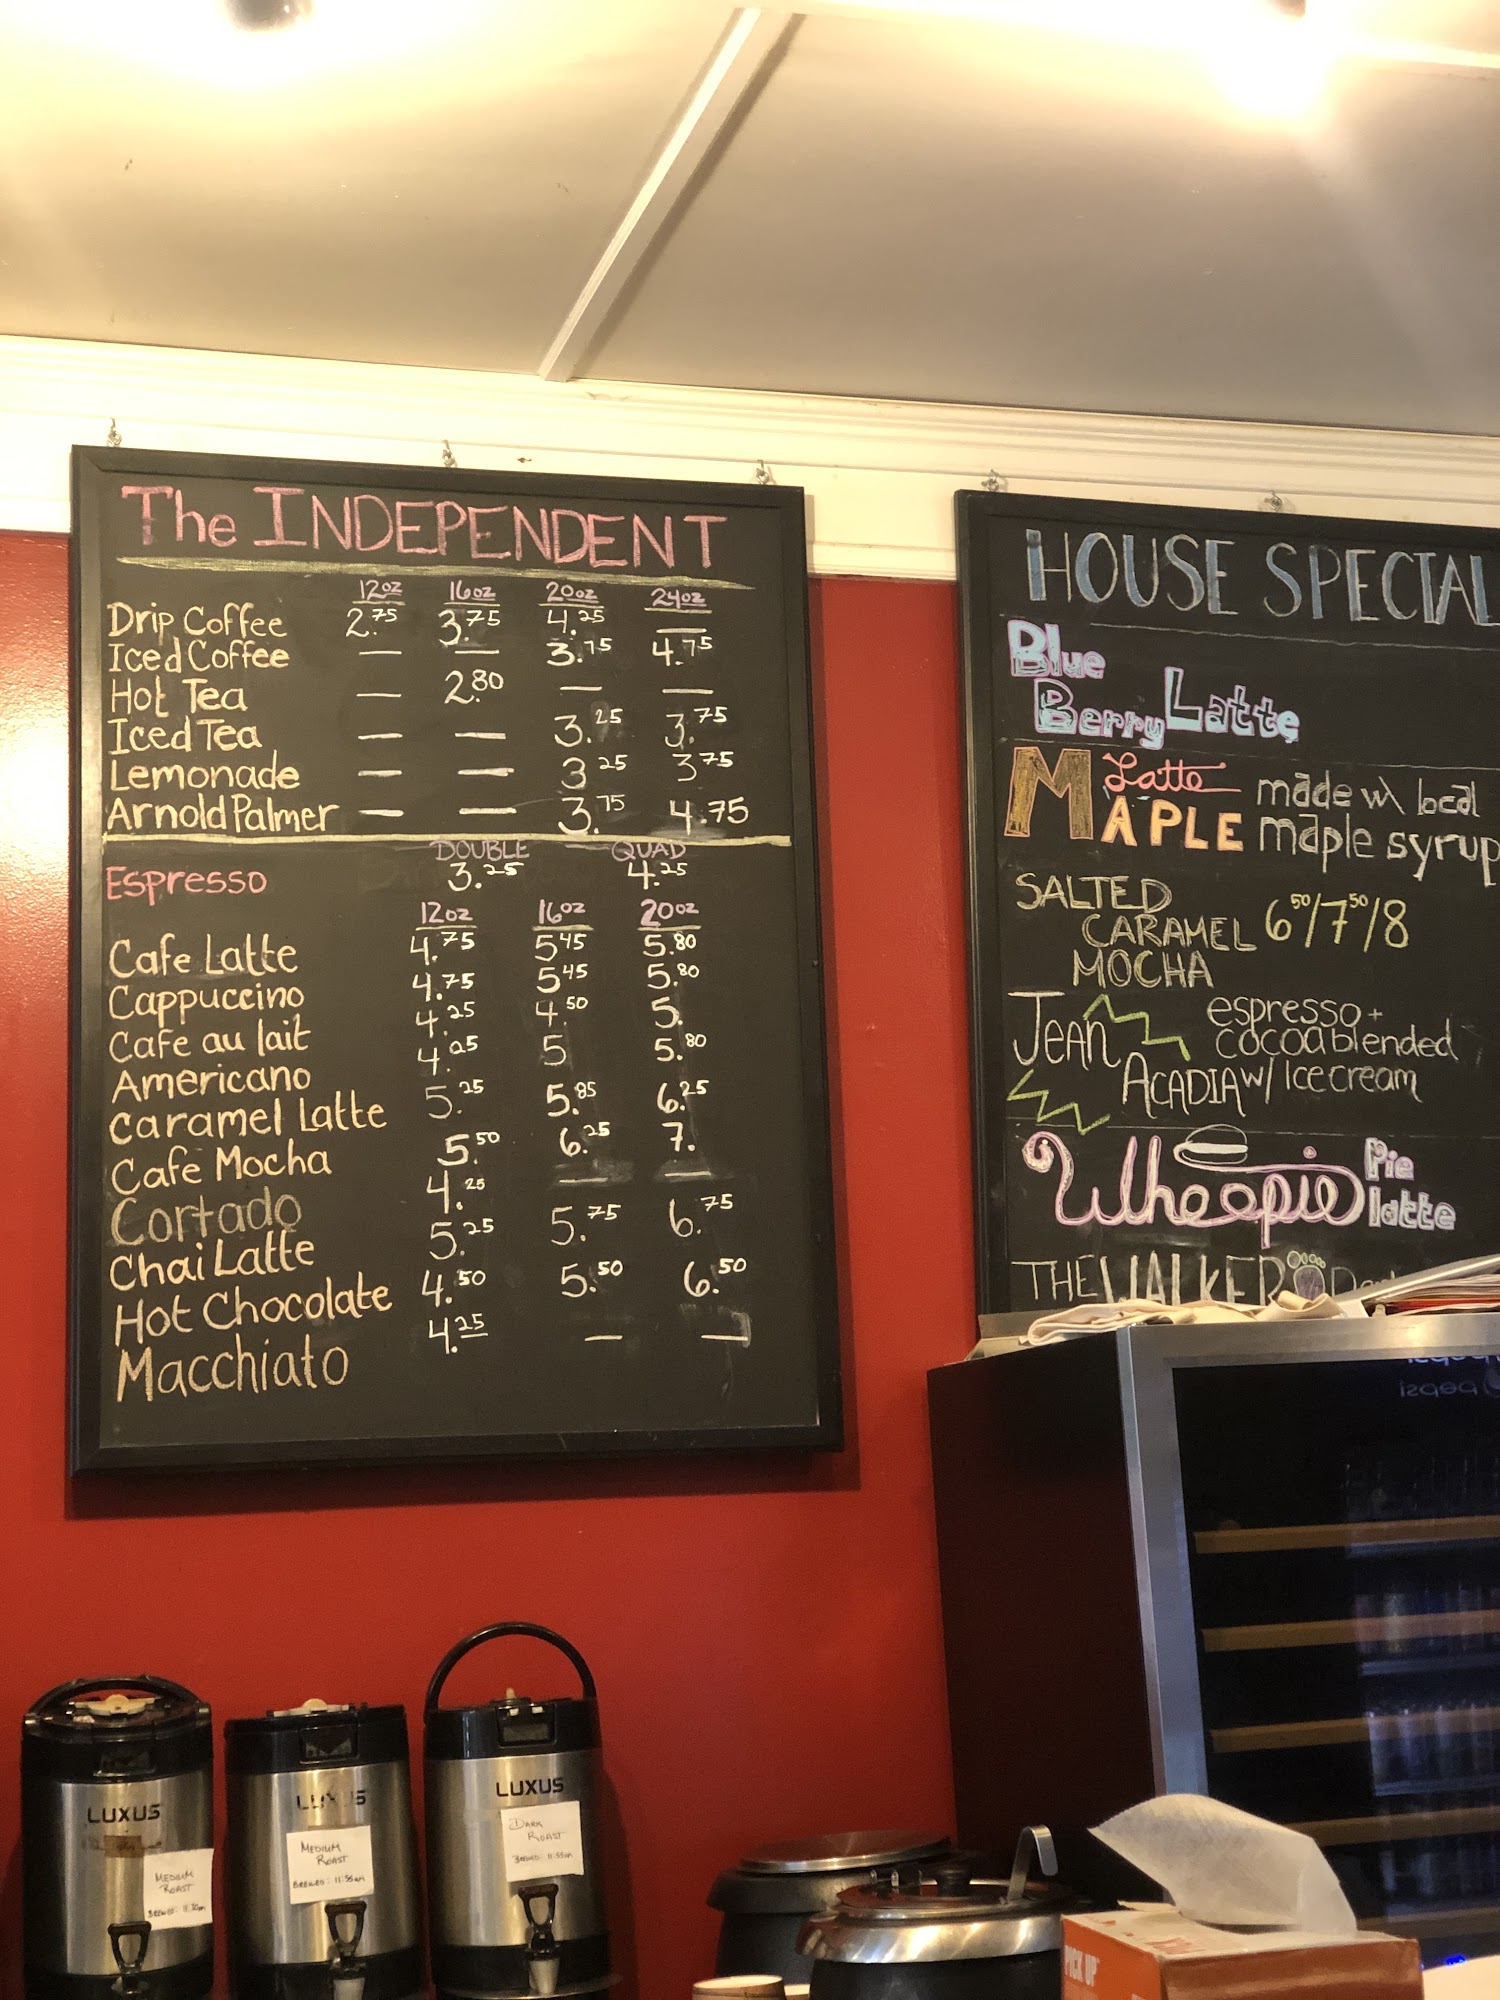 The INDEPENDENT
12oz 16oz 20oz 24oz
Drip Coffee 2.75 3.75 4.25 —
Iced Coffee — — 3.75 4.75
Hot Tea — 2.80 — —
Iced Tea — — 3.25 3.75
Lemonade — — 3 25 3 75
Arnold Palmer — — 3.75 4.75
DOUBLE QUAD
Espresso 3.25 4.25
12oz 16oz 20oz
Cafe Latte 4.75 5 45 5.80
Cappuccino 4.75 5 45 5.80
Cafe au lait 4.25 4.50 5.
Americano 4.25 5 5.80
Caramel Latte 5.25 5.85 6.25
Cafe Mocha 5.50 6.25 7.
Cortado 4.25 — —
Chai Latte 5.25 5.75 6.75
Hot Chocolate 4.50 5.50 6.50
Macchiato 4.25 — —
HOUSE SPECIAL
Blue
Berry Latte
Latte made w\ local
MAPLE maple syrup
SALTED
CARAMEL 6 50/7 50/8
MOCHA
JEAN espresso +
cocoa blended
ACADIA w/ Ice cream
Whoopie Pie
latte
THE WALKER
LUXUS
MEDIUM
ROAST
LUXUS
MEDIUM
ROAST
BREWED: 11:35am
LUXUS
DARK
ROAST
BREWED: 11:35am
pepsi
PICK UP